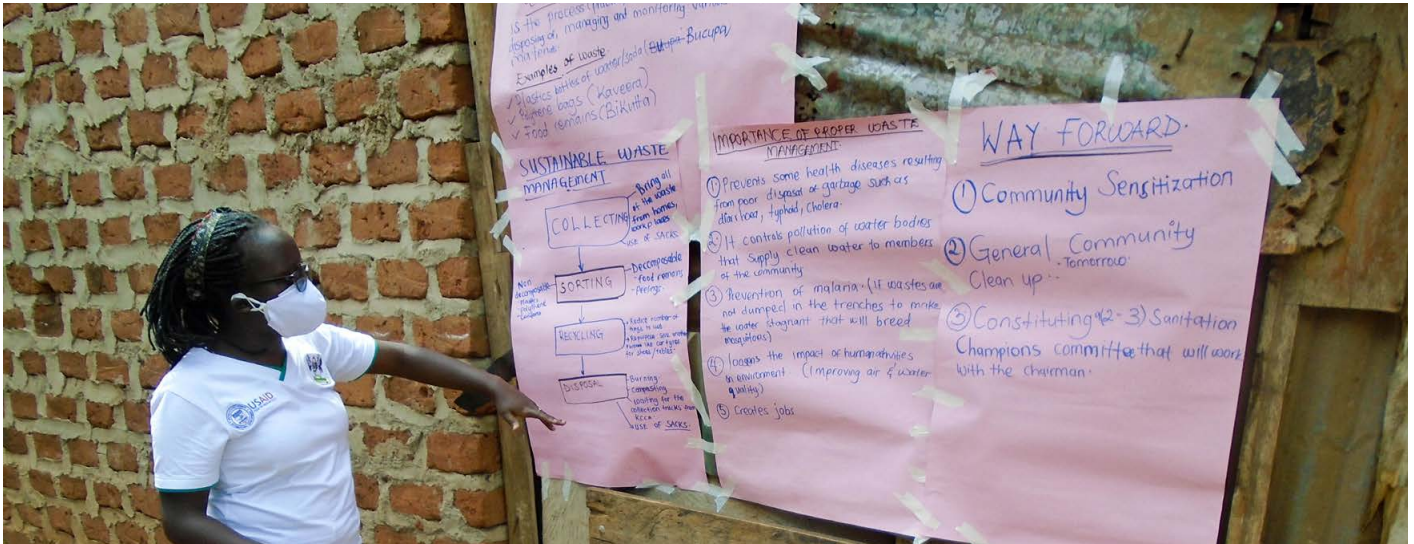 is the process
disposing of, managing and monitoring
materials.
Examples of waste.
✓ Plastics bottles of water/soda ( Bucupa)
bags (Kaveera)
✓ Food remains (Bikutta)
SUSTAINABLE WASTE
MANAGEMENT
COLLECTING
- Bring all
of the waste
from homes,
work places
USE OF SACKS.
SORTING
- Decomposable
- food remains
- Peelings.
Non
RECYCLING
• Reduce number of
bags to use
for
DISPOSAL
- Burning
- composting
- waiting for the
collection trucks from
KCCA
• USE OF SACKS.
IMPORTANCE OF PROPER WASTE
MANAGEMENT.
① Prevents some health diseases resulting
from poor disposal of garbage such as
diarrhoea, typhoid, Cholera.
② It controls pollution of water bodies
that supply clean water to members
of the community
③ Prevention of malaria. (if wastes are
not dumped in the trenches to make
the water stagnant that will breed
mosquitoes)
④ the impact of human activities
on environment (Improving air & water
quality)
⑤ Creates jobs
WAY FORWARD.
① Community Sensitization
② General Community
Clean up. - Tomorrow.
③ Constituting (2-3) Sanitation
Champions committee that will work
with the chairman.
USAID